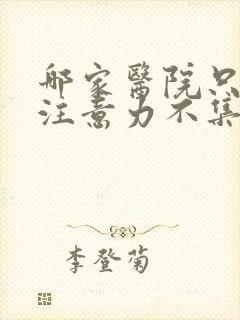 那家醫院只
注意力不集
李登菊